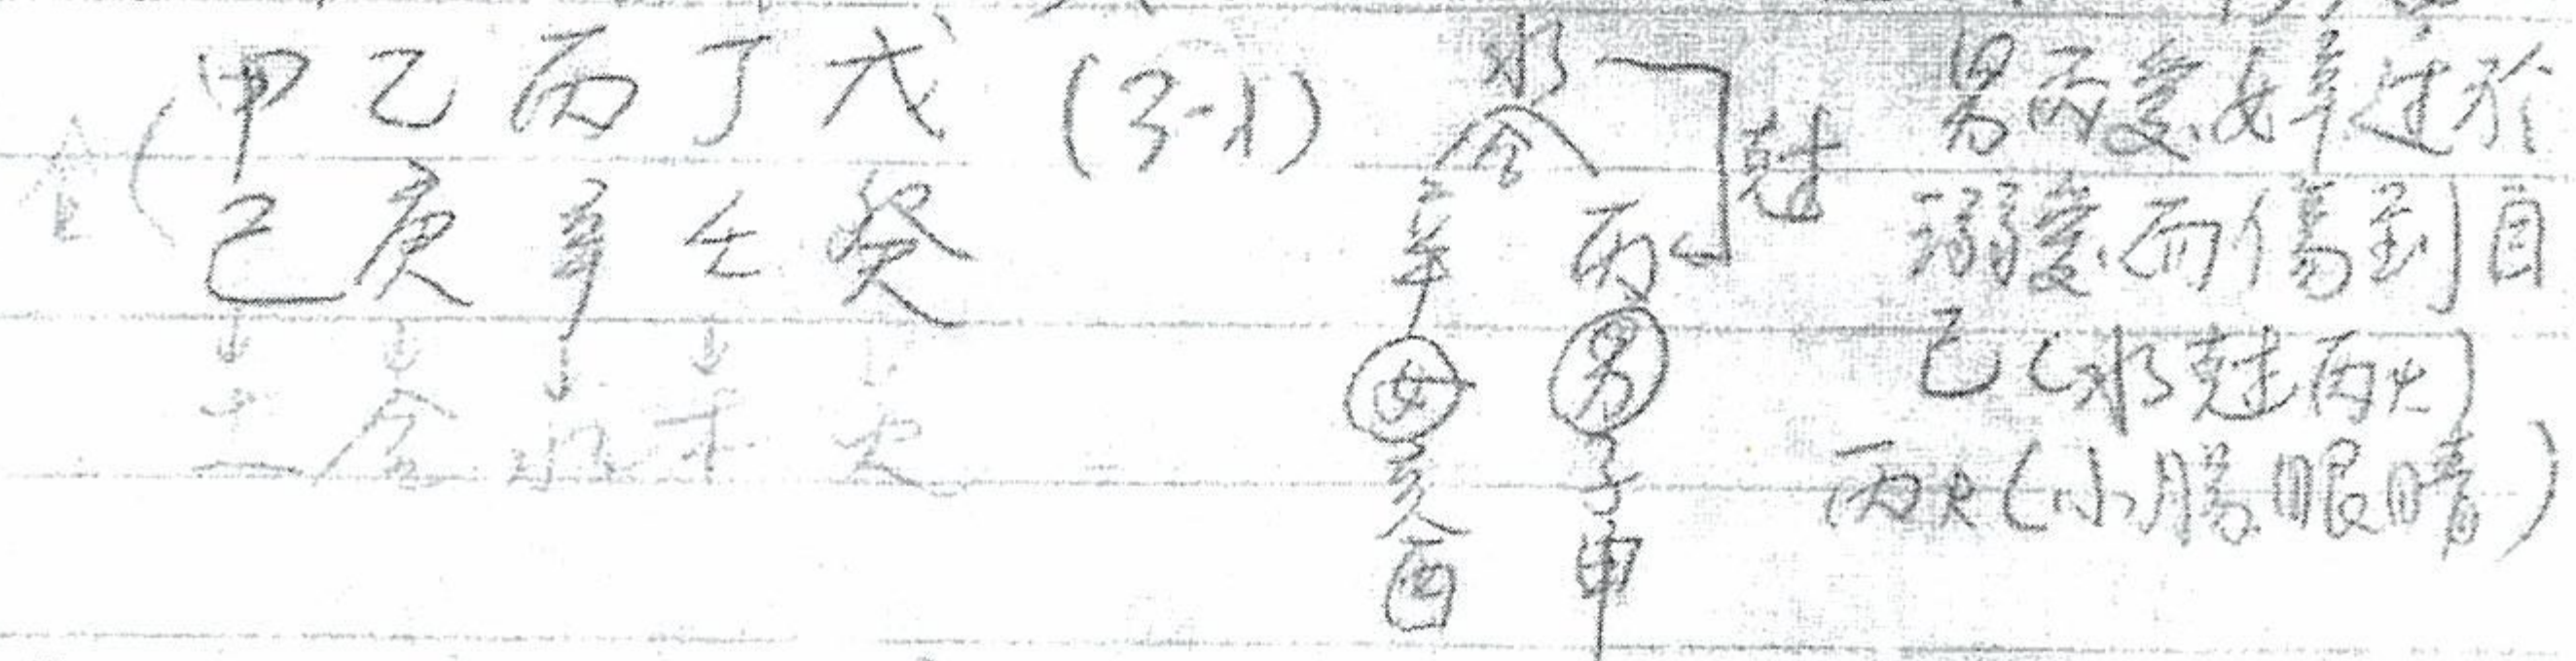 甲乙丙丁戊 (3-1)
合(
己庚辛壬癸
↓ ↓ ↓ ↓ ↓
土金水木火
水
合
尅
辛 丙
女 男
亥 子
酉 申
男丙愛女辛过於
溺愛而傷到自
己(水尅丙火)
丙火(小腸眼睛)